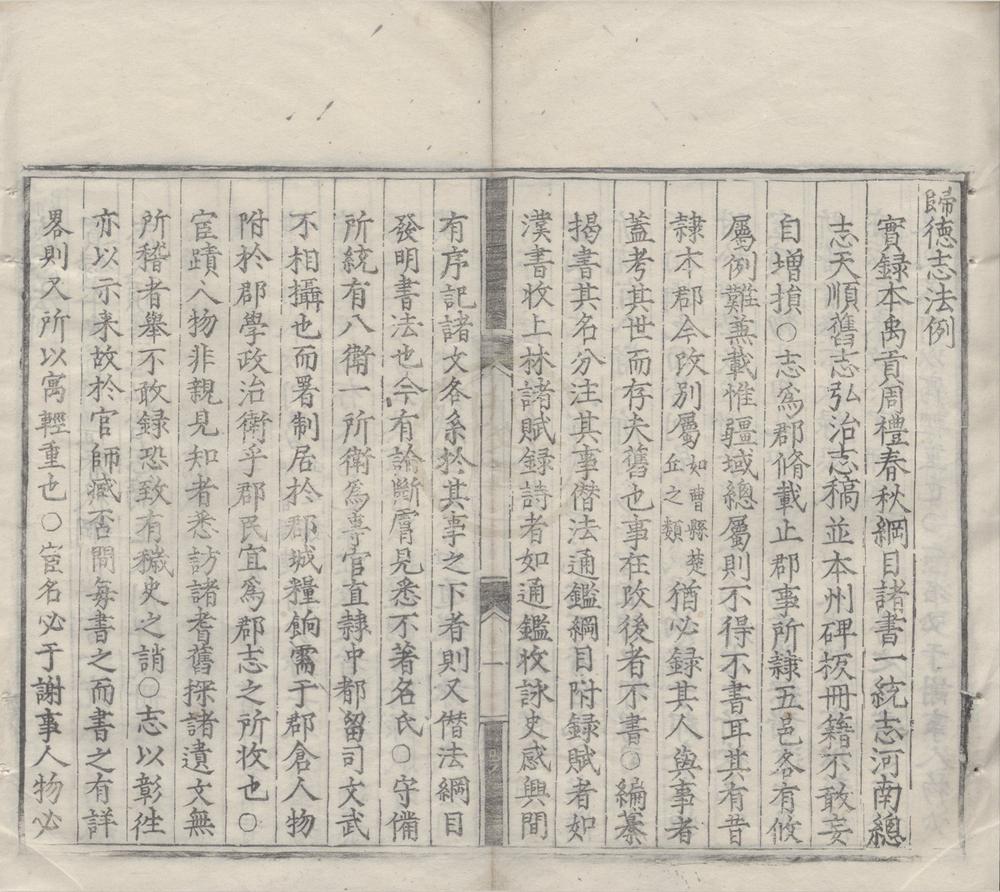 歸德志法例
實録本禹貢周禮春秋綱目諸書一統志河南總
志天順舊志弘治志稿並本州碑板冊籍不敢妄
自增損○志爲郡脩載止郡事所隷五邑各有攸
屬例難兼載惟疆域總屬則不得不書耳其有昔
隷本郡今改別屬如曹縣楚丘之類猶必録其人與事者
蓋考其世而存夫舊也事在改後者不書○編纂
揭書其名分注其事僣法通鑑綱目附録賦者如
漢書收上林諸賦録詩者如通鑑收詠史感興間
有序記諸文各系於其事之下者則又僣法綱目
發明書法也今有論斷膚見悉不著名氏○守備
所統有八衛一所衛爲専官直隷中都留司文武
不相攝也而署制居於郡城糧餉需于郡倉人物
附於郡學政治衛乎郡民宜爲郡志之所收也○
宦蹟人物非親見知者悉訪諸耆舊探諸遺文無
所稽者舉不敢録恐致有穢史之誚○志以彰徃
亦以示来故於官師臧否間毎書之而書之有詳
畧則又所以寓輕重也○宦名必于謝事人物必